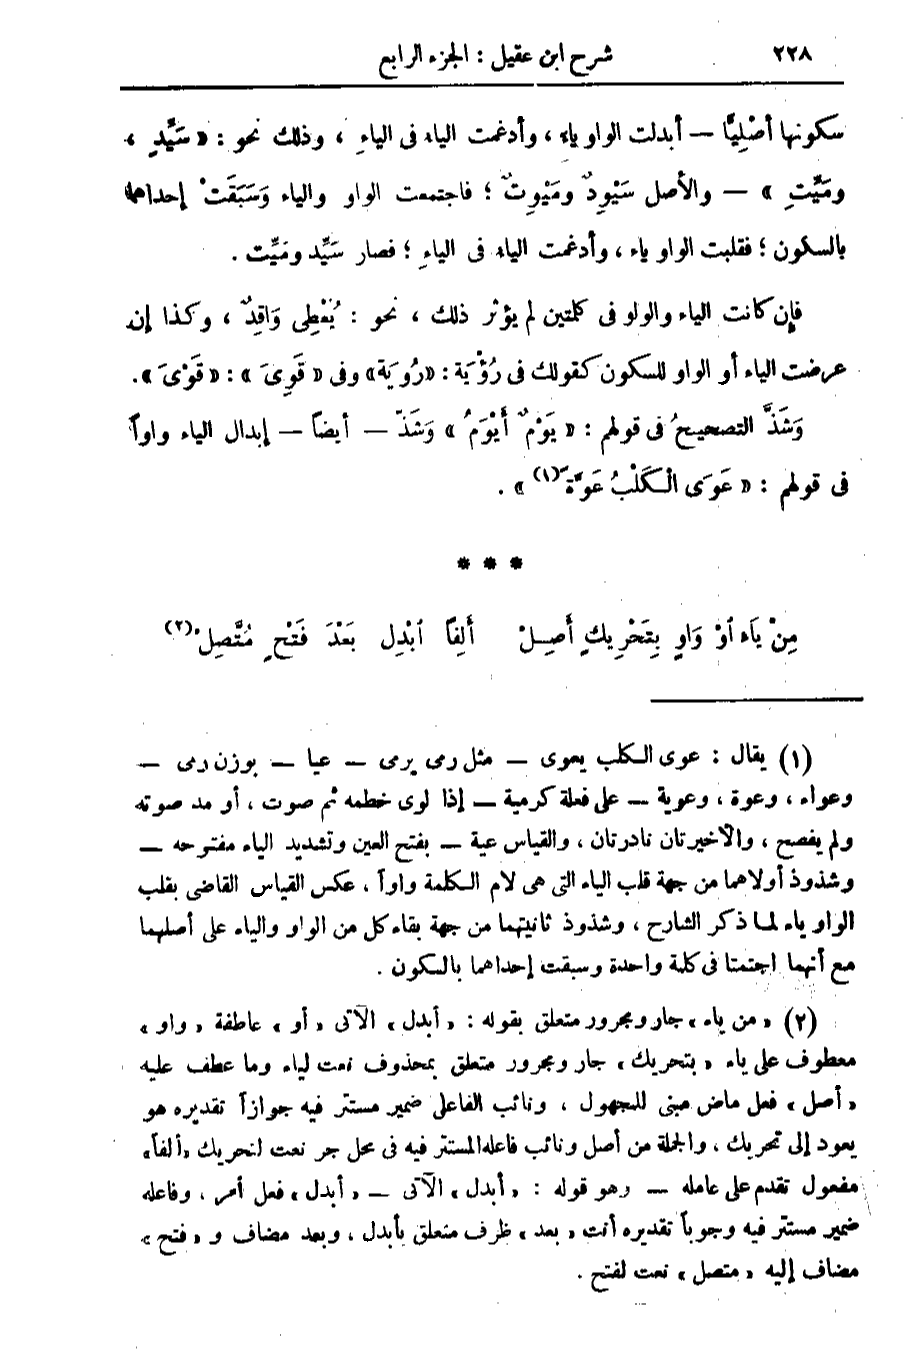 ٢٢٨ شرح ابن عقيل : الجزء الرابع
سكونها أصْلِيًّا — أبدلت الواو ياء ، وأدغمت الياء فى الياءِ ، وذلك نحو : « سَيِّدٍ ،
ومَيِّتٍ » — والأصل سَيْوِدٌ ومَيْوِتٌ ؛ فاجتمعت الواو والياء وَسَبَقَتْ إحداهما
بالسكون ؛ فقلبت الواو ياء ، وأدغمت الياء فى الياءِ ؛ فصار سَيِّد ومَيِّت .
فإن كانت الياء والواو فى كلمتين لم يؤثر ذلك ، نحو : يُعْطِى وَاقِدٌ ، وكذا إن
عرضت الياء أو الواو للسكون كقولك فى رُؤْيَة : «رُويَة» وفى « قَوِىَ » : « قَوْىَ ».
وَشَذَّ التصحيحُ فى قولهم : « يَوْمٌ أَيْوَمُ » وَشَذّ — أيضاً — إبدال الياء واواً
فى قولهم : « عَوَى الْكَلْبُ عَوَّةً (١) » .
* * *
مِنْ يَاءٍ أوْ وَاوٍ بِتَحْرِيكٍ أُصِلْ أَلِفًا ابْدِل بَعْدَ فَتْحٍ مُتَّصِلْ (٢)
(١) يقال : عوى الكلب يعوى — مثل رمى يرمى — عيا — بوزن رمى —
وعواء ، وعوة ، وعوية — على فعلة كرمية — إذا لوى خطمه ثم صوت ، أو مد صوته
ولم يفصح ، والأخيرتان نادرتان ، والقياس عية — بفتح العين وتشديد الياء مفتوحه —
وشذوذ أولاهما من جهة قلب الياء التى هى لام الكلمة واواً ، عكس القياس القاضى بقلب
الواو ياء لما ذكر الشارح ، وشذوذ ثانيتهما من جهة بقاء كل من الواو والياء على أصلهما
مع أنهما اجتمتا فى كلمة واحدة وسبقت إحداهما بالسكون .
(٢) « من ياء » جار ومجرور متعلق بقوله : « أبدل » الآتى « أو » عاطفة « واو »
معطوف على ياء « بتحريك » جار ومجرور متعلق بمحذوف نعت لياء وما عطف عليه
« أصل » فعل ماض مبنى للمجهول ، ونائب الفاعل ضمير مستتر فيه جوازاً تقديره هو
يعود إلى تحريك ، والجملة من أصل ونائب فاعله المستتر فيه فى محل جر نعت لتحريك «ألفاً»
مفعول تقدم على عامله — وهو قوله : « أبدل » الآتى — « أبدل » فعل أمر ، وفاعله
ضمير مستتر فيه وجوباً تقديره أنت « بعد » ظرف متعلق بأبدل ، وبعد مضاف و « فتح »
مضاف إليه « متصل » نعت لفتح .